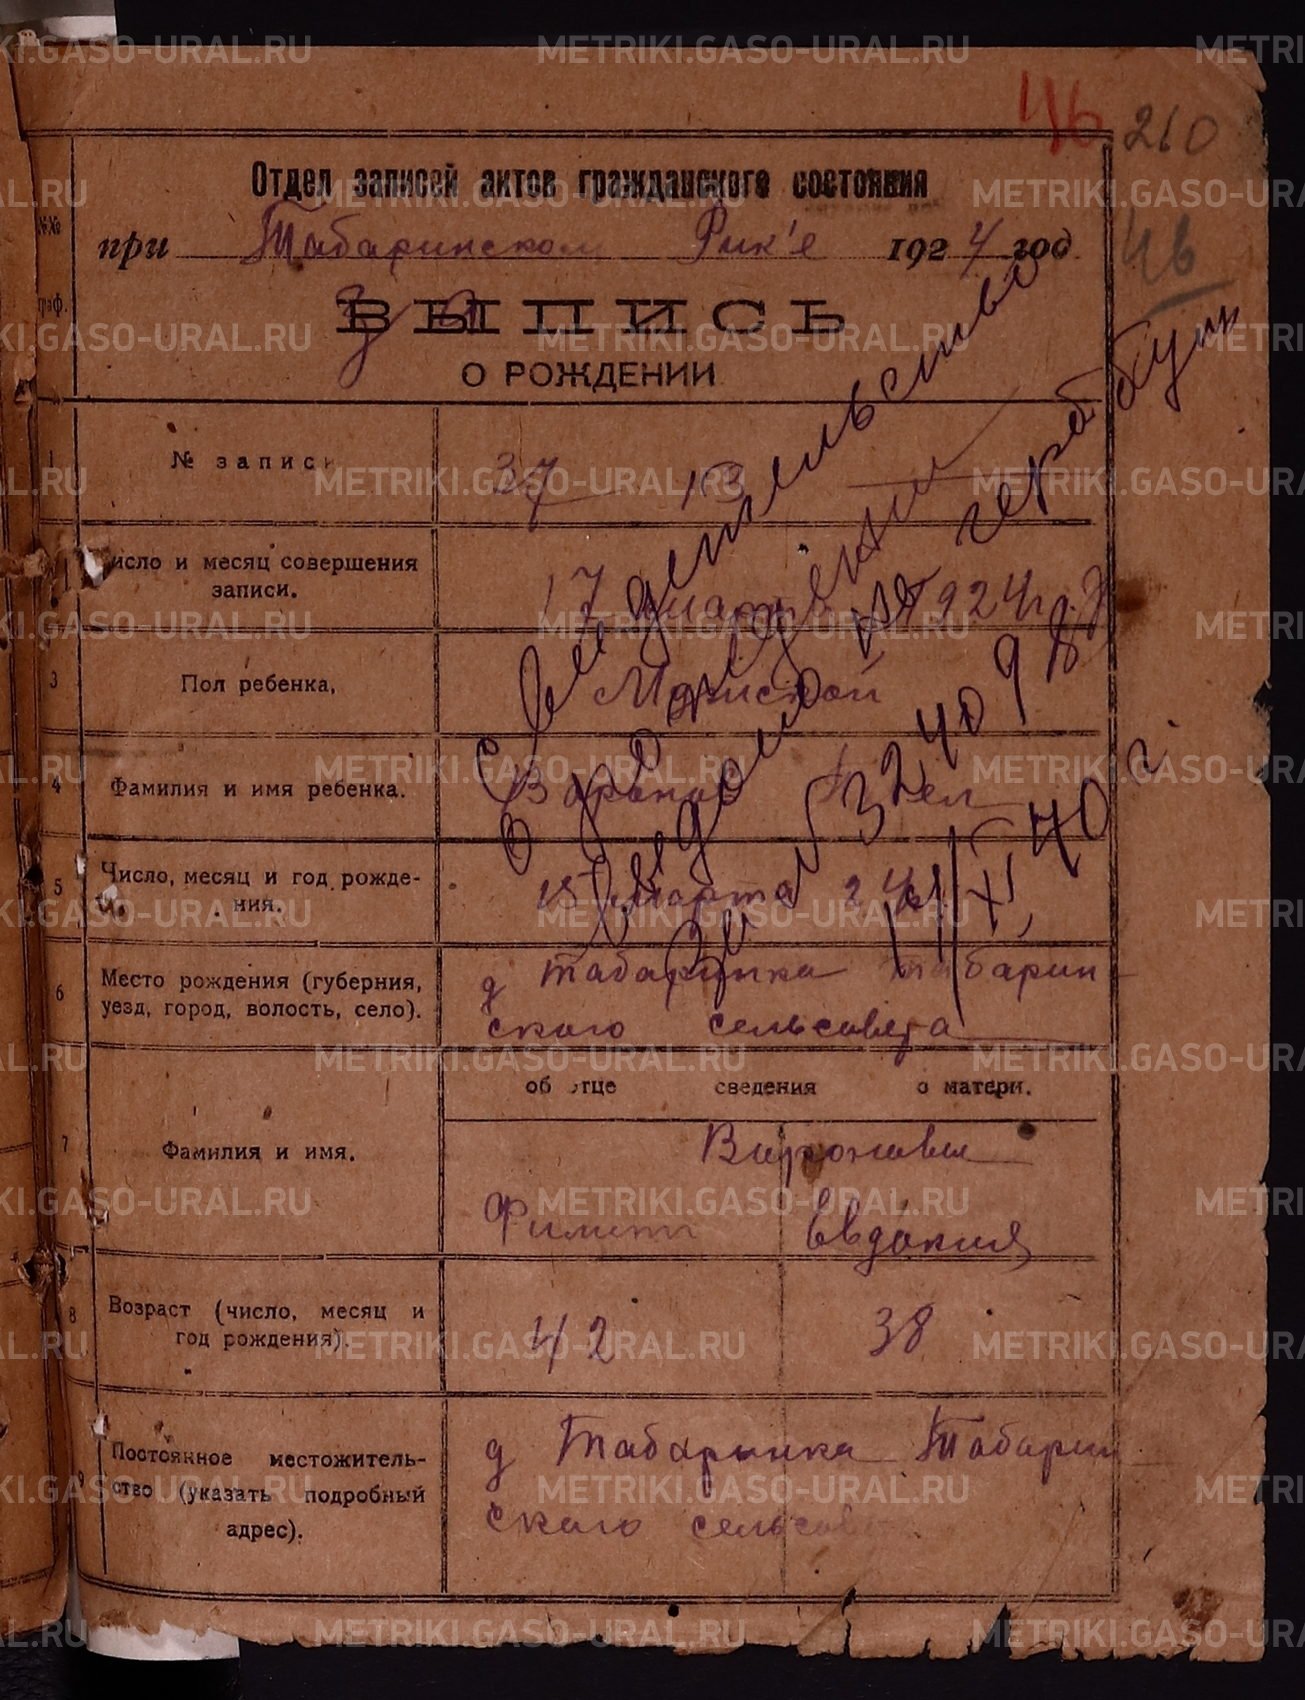 46 210
Отдел записей актов гражданского состояния
№№
при Табаринском Рик'е 1924 год
46
граф.
ВЫПИСЬ
О РОЖДЕНИИ
1 № записи 37 13
число и месяц совершения
записи. 17 марта 1924 г.
3 Пол ребенка. Мужской
4 Фамилия и имя ребенка. Воронов
5 Число, месяц и год рожде-
ния. 15 Марта 24
6 Место рождения (губерния, д Табаринка Табарин
уезд, город, волость, село). ского сельсовета
об отце сведения о матери.
7 Фамилия и имя. Вороновы
Филипп Евдокия
8 Возраст (число, месяц и
год рождения). 42 38
9 Постоянное местожитель- д Табаринка Табарин
ство (указать подробный ского сельсове
адрес).
Свидетельство
о рождении
выдано
за N 324098
11/XI, 40 г.
METRIKI.GASO-URAL.RU